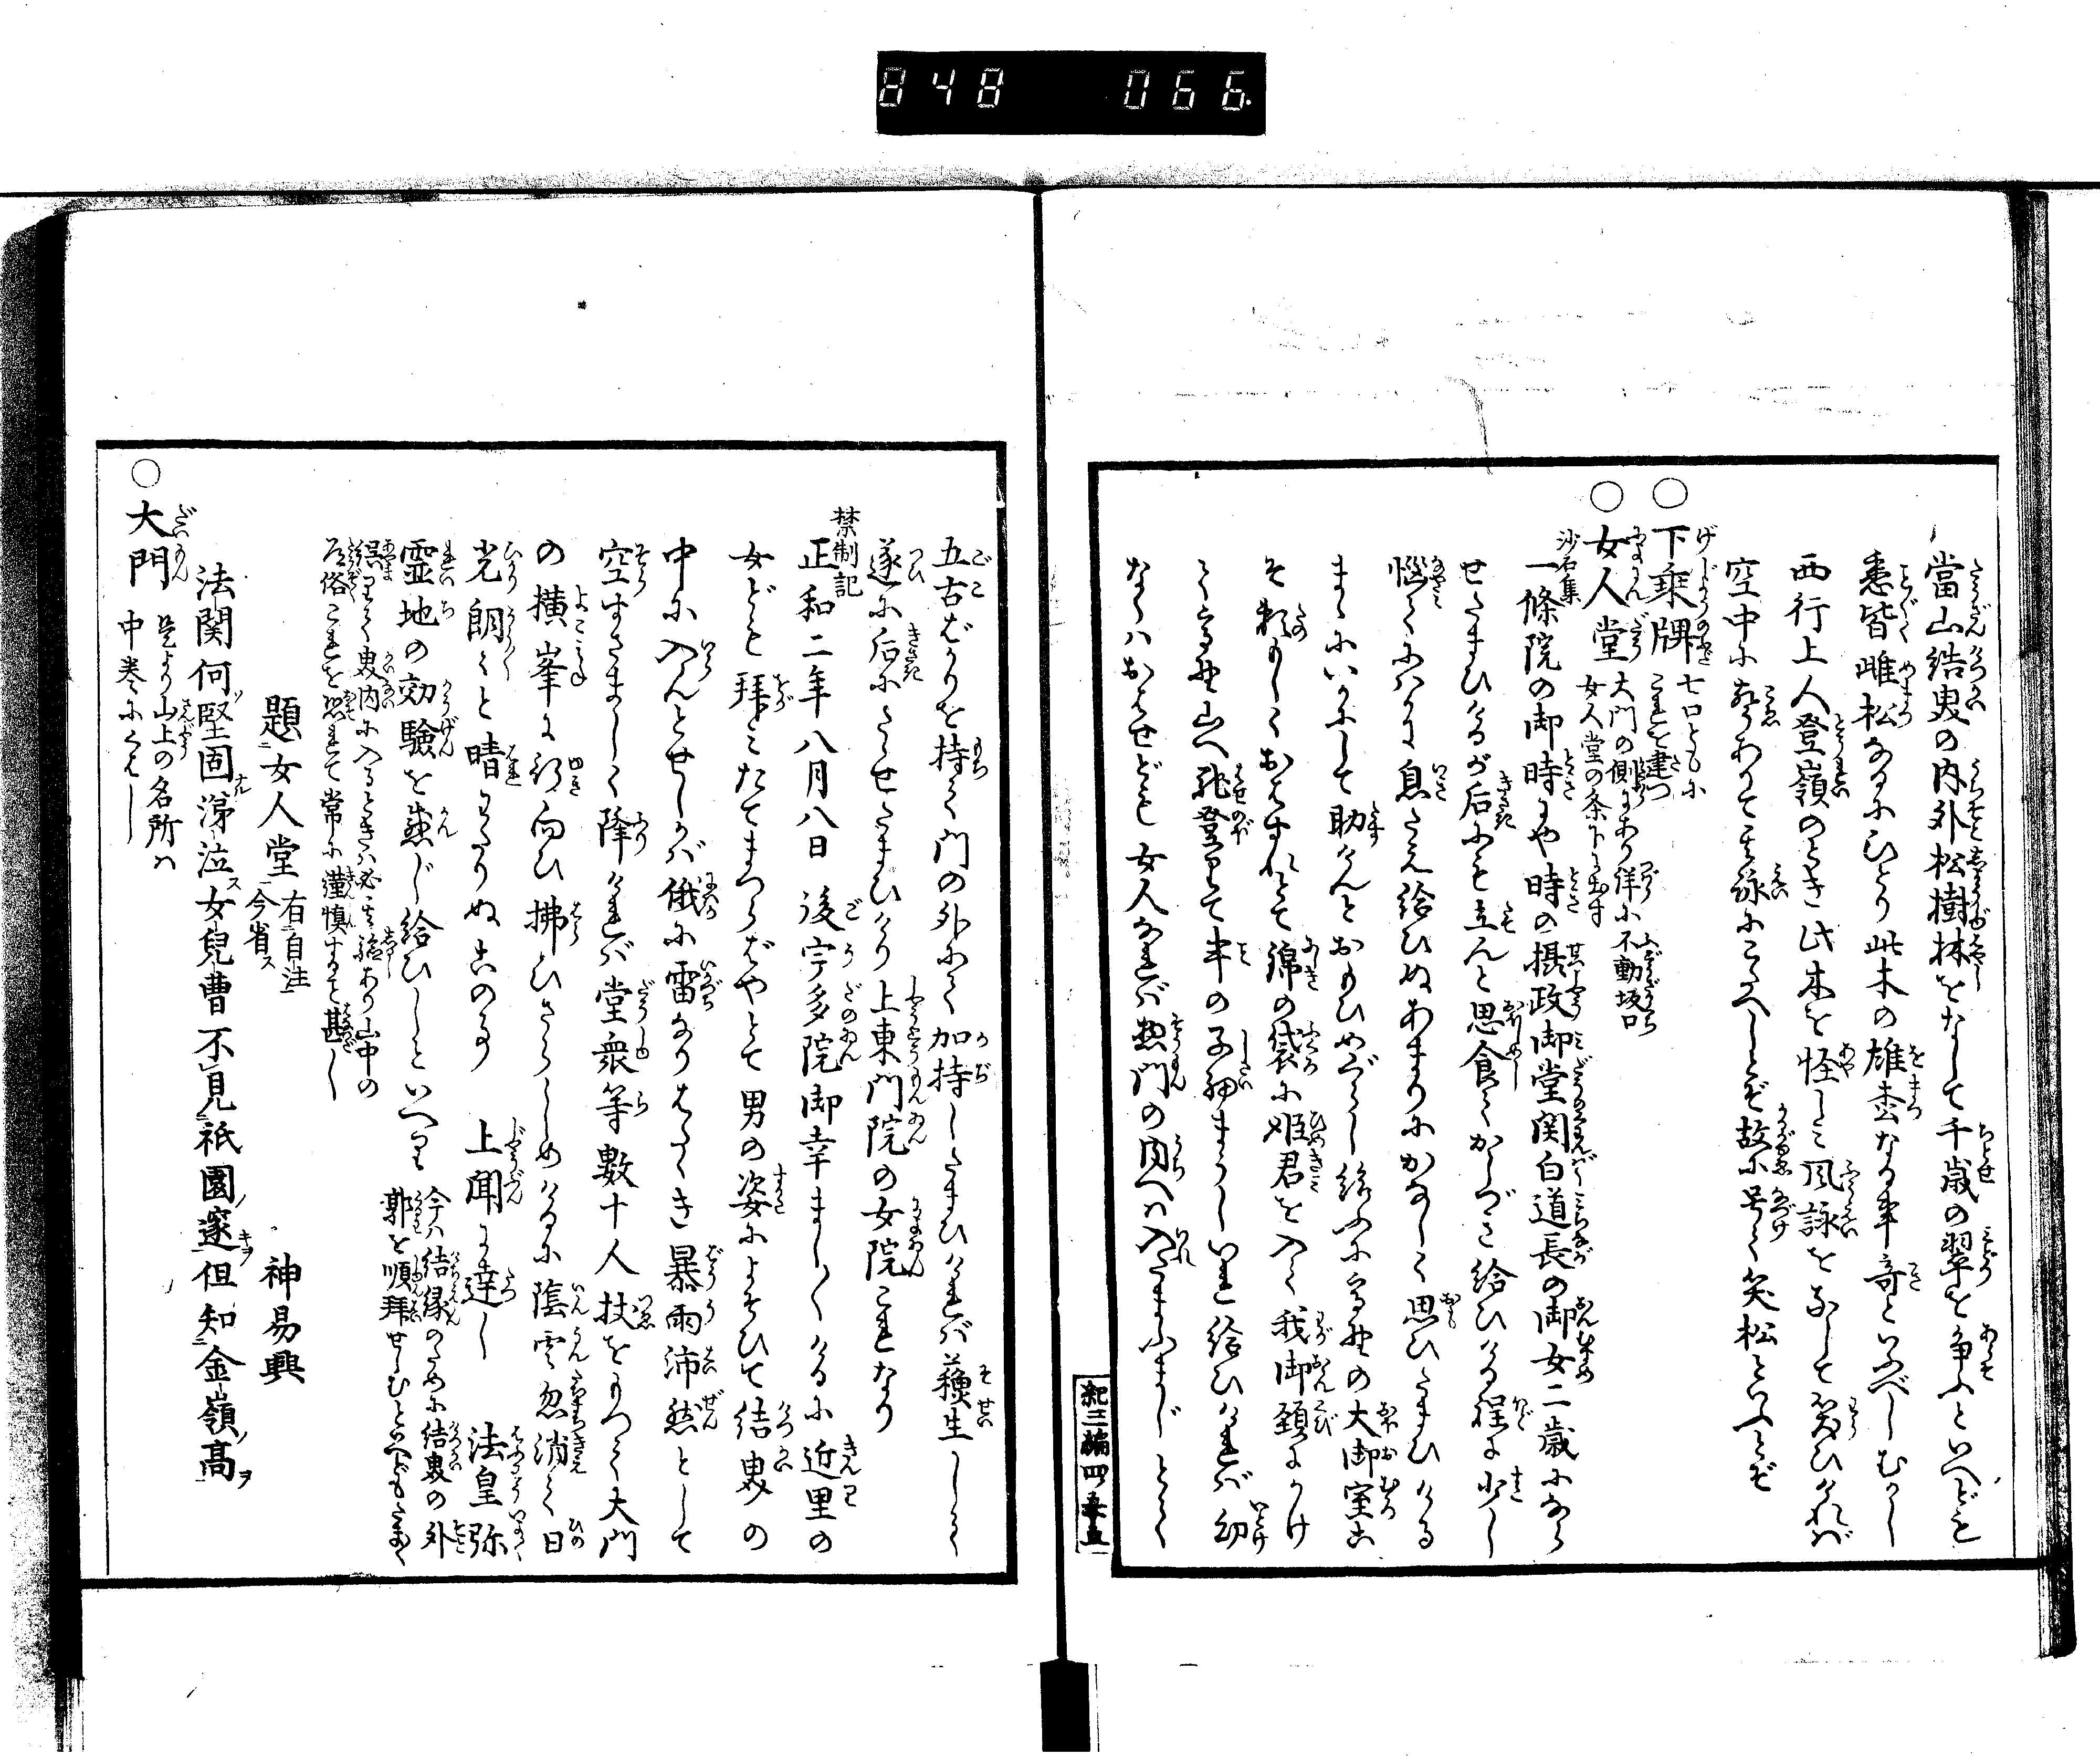 848 066.
當山結界の内外松樹林をなして千歳の翠を争ふといへども
悉皆雌松なるにひとり此木の雄枩なる事奇といふべしむかし
西行上人登嶺のとき此木を怪しみ風詠をなして笑ひければ
空中に聲ありて其詠にこたへしとぞ故に号て笑松といふとぞ
○下乗牌 七口ともに
これを建つ
○女人堂 大門の側にあり詳に不動坂口
女人堂の条下に出す
沙石集
一條院の御時にや時の摂政御堂関白道長の御女二歳になら
せたまひけるが后にも立んと思食てかしづき給ひける程に少し
悩てにはかに息たえ給ひぬあまりにかなしく思ひたまひける
まゝにいかにして助けんとおもひめぐらし給ふに高野の大御室こ
そ頼もしくおはすれとて錦の袋に姫君を入て我御頚にかけ
て高野山へ馳登りて事の子細まうしいれ給ひければ幼
なくはおはせども女人なれば惣門の内へは入たまふまじとて
紀三編四ノ五十五
五古ばかりを持て門の外にて加持したまひければ蘓生しして
遂に后にたゝせたまひけり上東門院の女院これなり
禁制記
正和二年八月八日後宇多院御幸ましましけるに近里の
女ども拝みたてまつらばやとて男の姿によそひて結界の
中に入んとせしかば俄に雷なりはためき暴雨沛然として
空すさましく降ければ堂衆等數十人杖をもつて大門
の横峯に行向ひ拂ひさらしめけるに陰雲忽消て日
光朗々と晴わたりぬこの事 上聞に達し 法皇弥
霊地の効驗を感じ給ひしといへり 今は結縁のために結界の外
郭を順拝せしむといへどもたまたま
誤りて界内に入るときは必其祟あり山中の
道俗これを恐れて常に謹慎すること甚し
題女人堂 右自注
今省ス 神易興
法関何堅固涕泣女兒曹不見祇園邃但知金嶺髙
○大門 是より山上の名所は
中巻にくはし